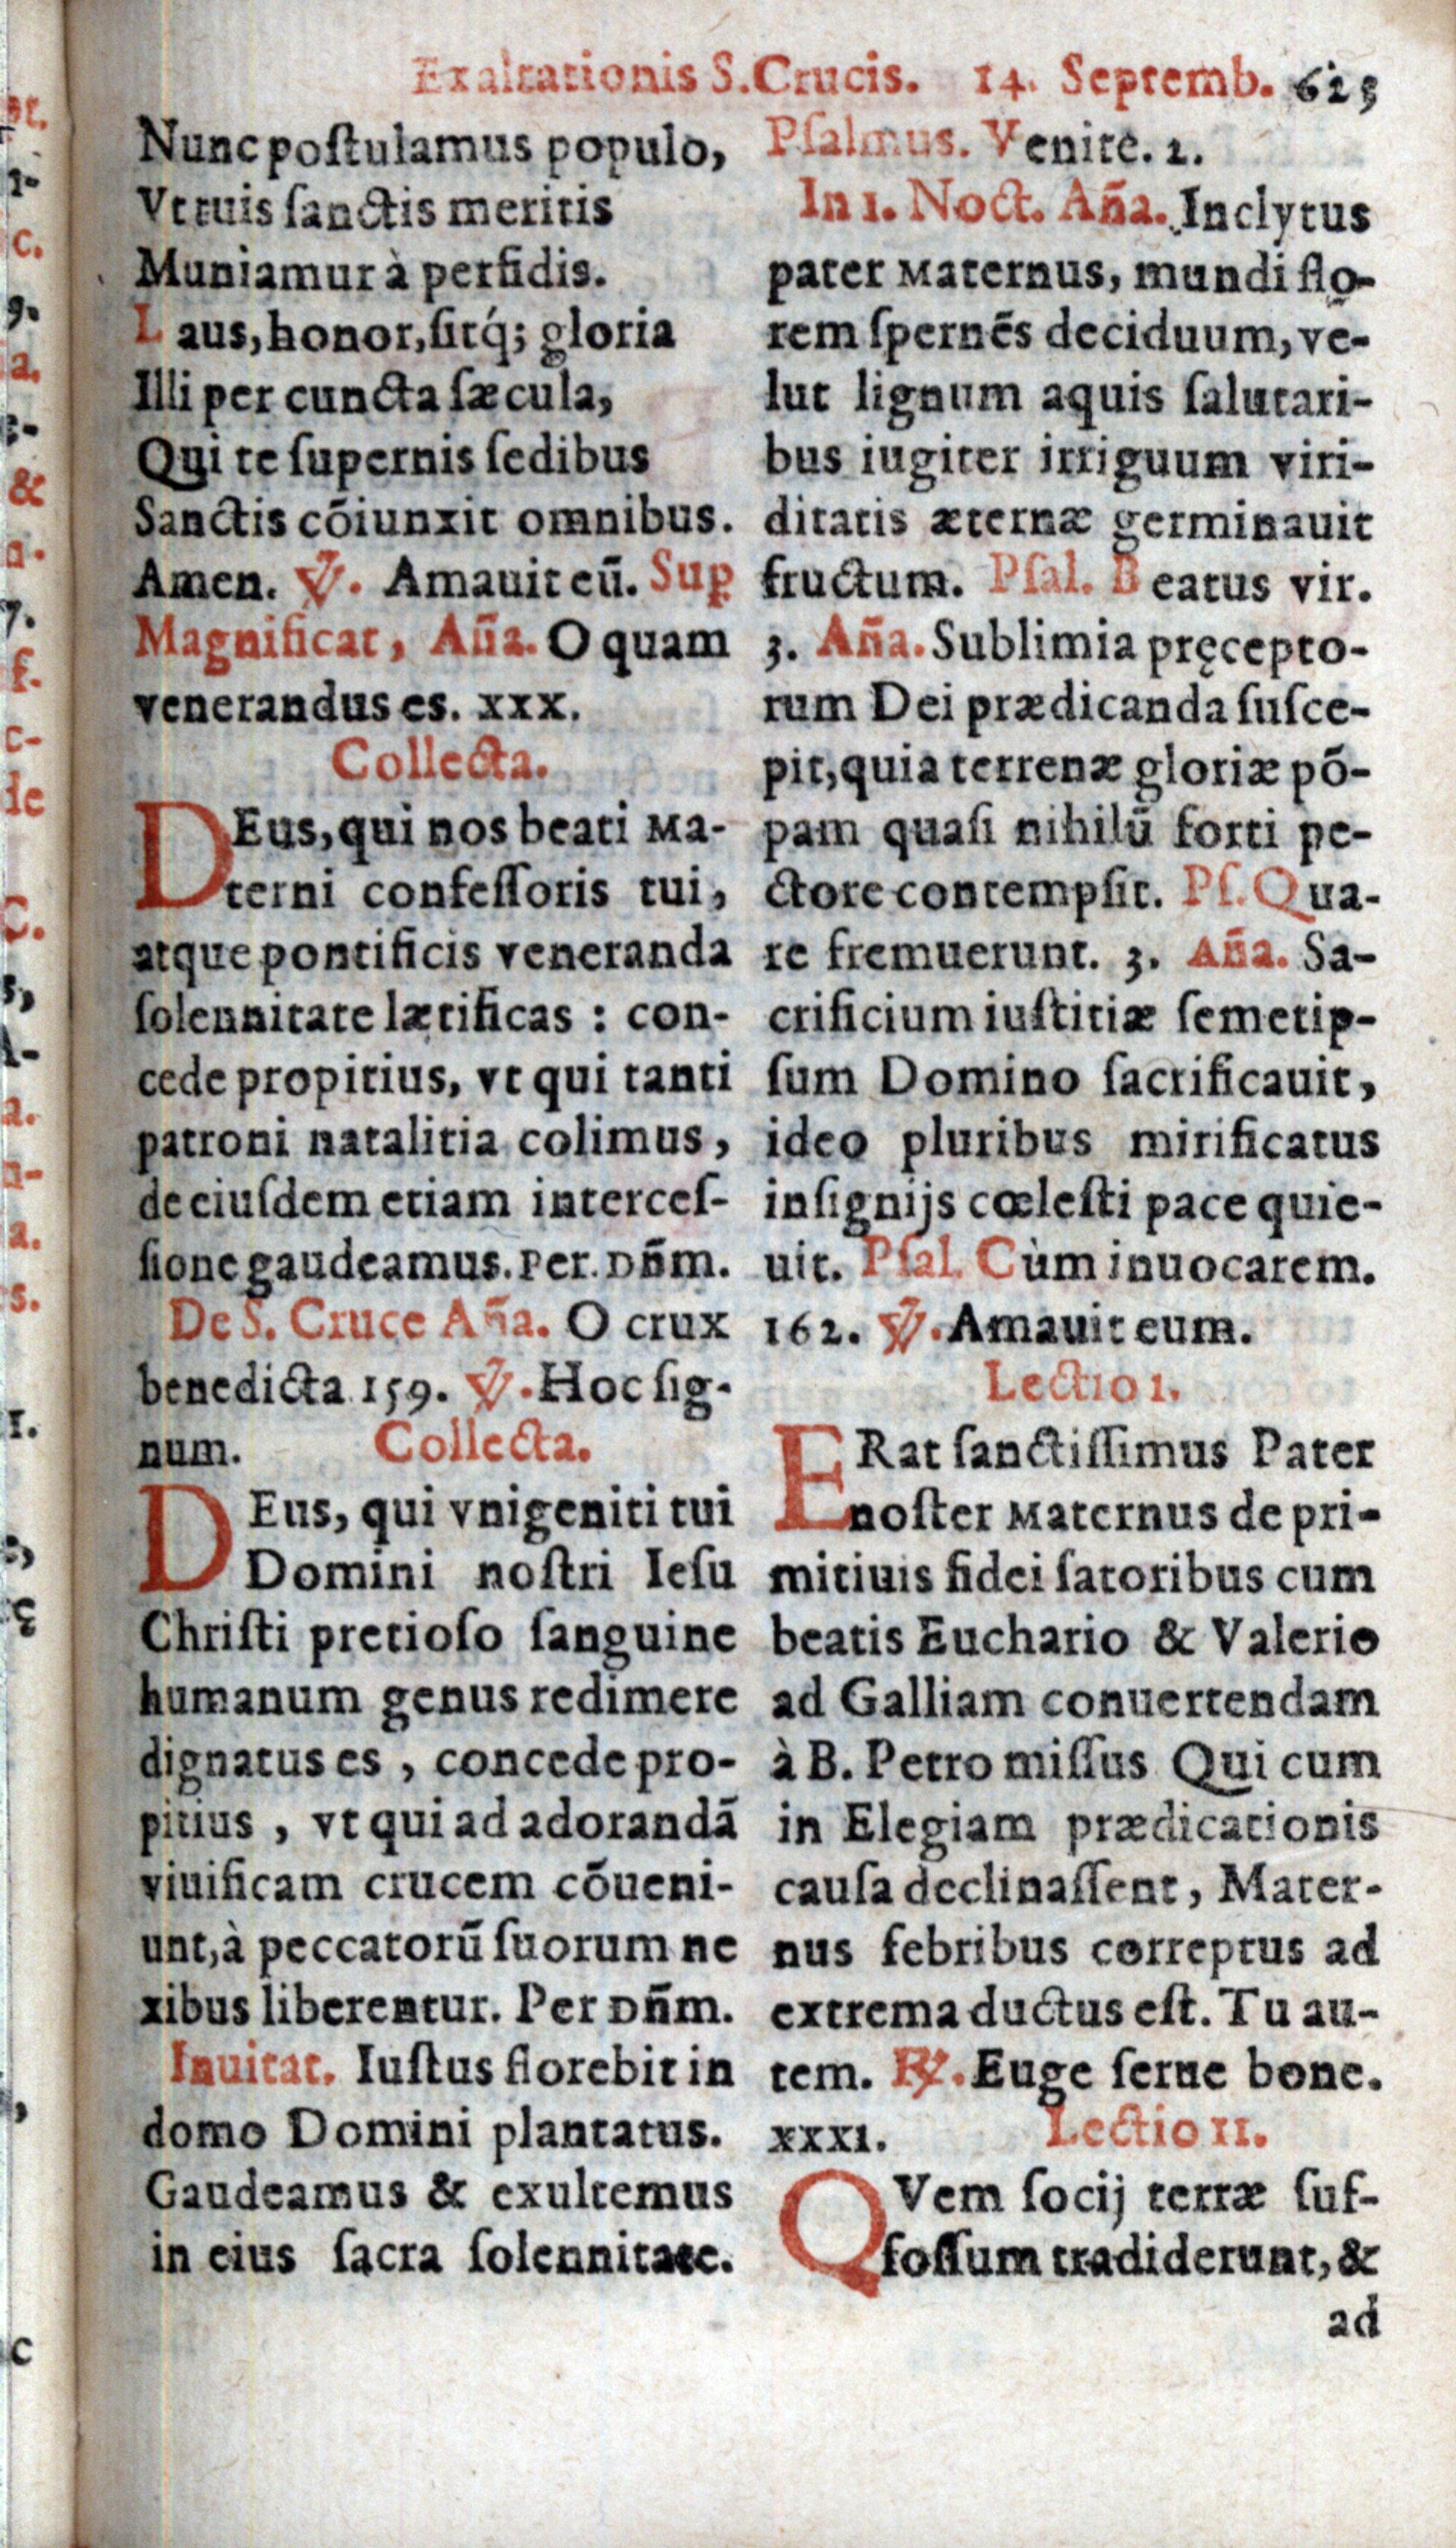 Exaltationis S. Crucis. 14. Septemb. 625
Nunc poſtulamus populo,
Vt tuis ſanctis meritis
Muniamur à perfidis.
Laus, honor, ſitq́; gloria
Illi per cuncta ſæcula,
Qui te ſupernis ſedibus
Sanctis cõiunxit omnibus.
Amen. ℣. Amauit eū. Sup
Magnificat, Aña. O quam
venerandus es. xxx.
Collecta.
DEus, qui nos beati Ma-
terni confeſſoris tui,
atque pontificis veneranda
ſolennitate lætificas : con-
cede propitius, vt qui tanti
patroni natalitia colimus,
de eiuſdem etiam interceſ-
ſione gaudeamus. Per. Dñm.
De S. Cruce Aña. O crux
benedicta 159. ℣. Hoc ſig-
num. Collecta.
DEus, qui vnigeniti tui
Domini noſtri Ieſu
Chriſti pretioſo ſanguine
humanum genus redimere
dignatus es, concede pro-
pitius, vt qui ad adorandã
viuificam crucem cõueni-
unt, à peccatorũ ſuorum ne
xibus liberentur. Per Dñm.
Inuitat. Iuſtus florebit in
domo Domini plantatus.
Gaudeamus & exultemus
in eius ſacra ſolennitate.
Pſalmus. Venite. 2.
In 1. Noct. Aña. Inclytus
pater Maternus, mundi flo-
rem ſpernẽs deciduum, ve-
lut lignum aquis ſalutari-
bus iugiter irriguum viri-
ditatis æternæ germinauit
fructum. Pſal. Beatus vir.
3. Aña. Sublimia pręcepto-
rum Dei prædicanda ſuſce-
pit, quia terrenæ gloriæ põ-
pam quaſi nihilũ forti pe-
ctore contempſit. Pſ. Qua-
re fremuerunt. 3. Aña. Sa-
crificium iuſtitiæ ſemetip-
ſum Domino ſacrificauit,
ideo pluribus mirificatus
inſignijs cœleſti pace quie-
uit. Pſal. Cùm inuocarem.
162. ℣. Amauit eum.
Lectio 1.
ERat ſanctiſſimus Pater
noſter Maternus de pri-
mitiuis fidei ſatoribus cum
beatis Euchario & Valerio
ad Galliam conuertendam
à B. Petro miſſus Qui cum
in Elegiam prædicationis
cauſa declinaſſent, Mater-
nus febribus correptus ad
extrema ductus eſt. Tu au-
tem. ℟. Euge ſerue bone.
xxxi. Lectio II.
QVem ſocij terræ ſuf-
foſſum tradiderunt, &
ad